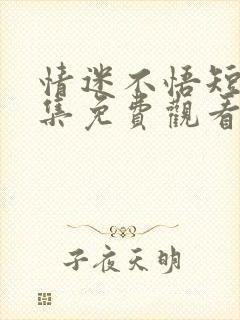 情迷不悟短
集免費觀看
子夜天明